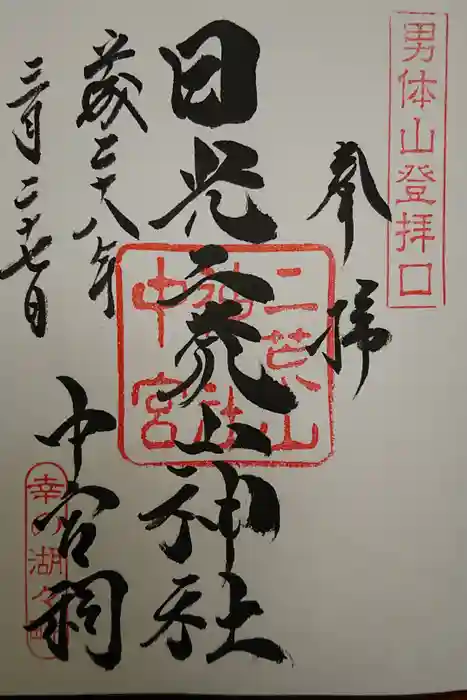 男体山登拝口
奉拝
日光二荒山神社
二荒山
神社
中宮
平成二十八年
三月二十七日
中宮祠
幸の湖